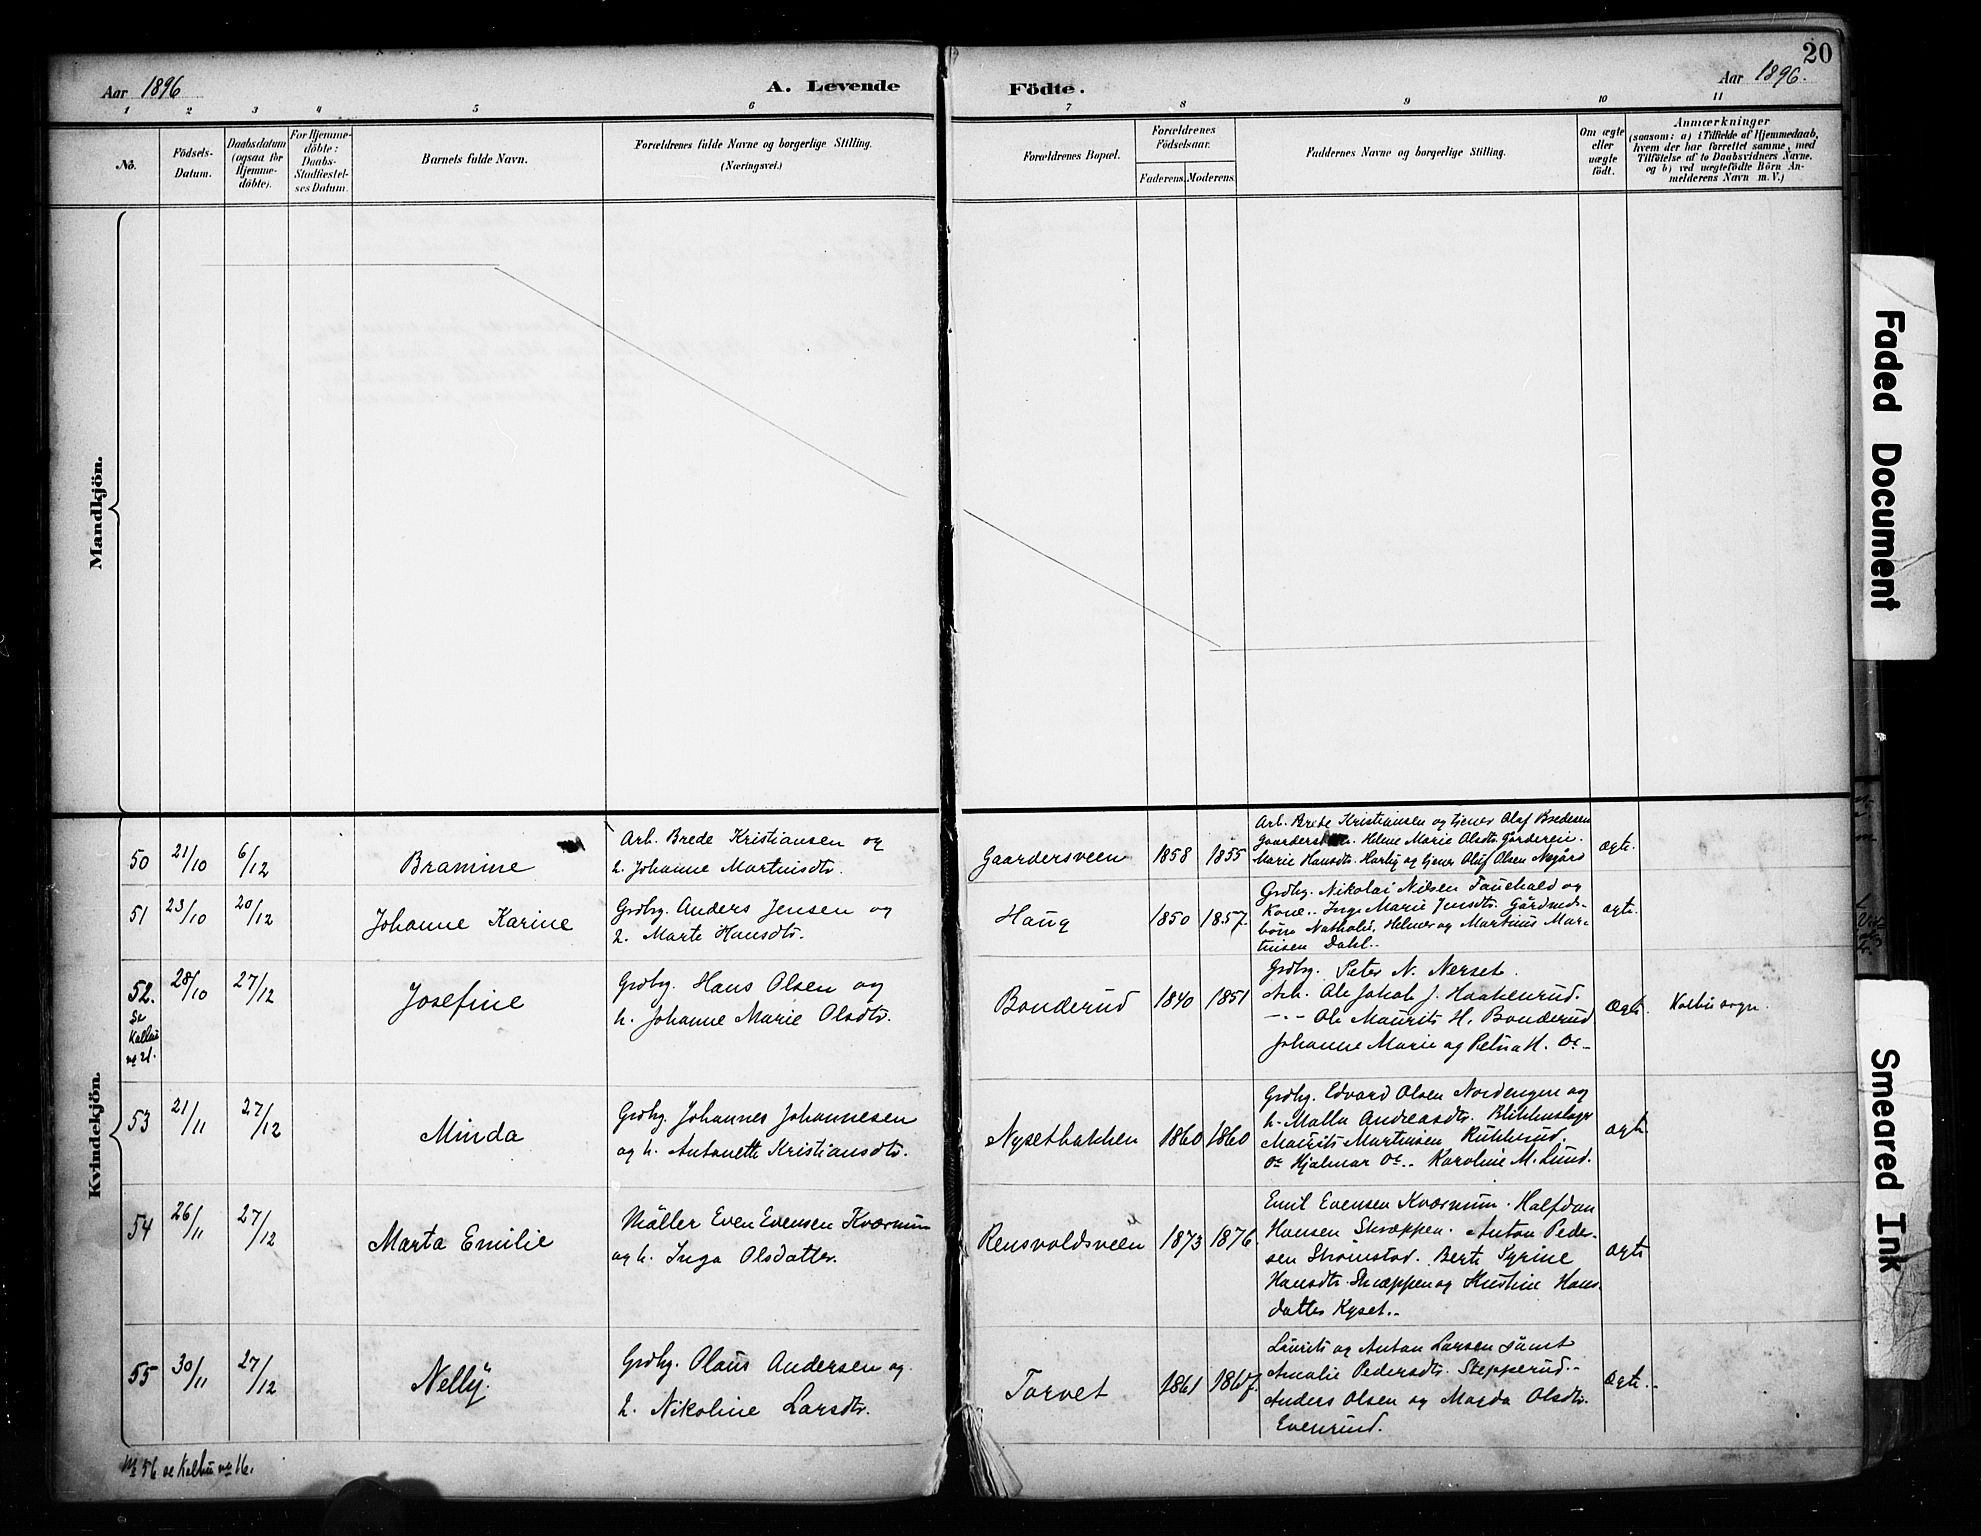 20
Aar 1896
A. Levende
Födte.
Aar 1896.
1 2 3 4 5 6 7 8 9 10 11
No.
Födsels-
Datum.
Daabsdatum
(ogsaa for
Hjemme-
döbte).
For Hjemme-
döbte:
Daabs-
Stadfæstel-
ses Datum.
Barnets fulde Navn.
Forældrenes fulde Navne og borgerlige Stilling.
(Næringsvei.)
Forældrenes Bopæl.
Forældrenes
Födselsaar.
Faderens. Moderens.
Faddernes Navne og borgerlige Stilling.
Om ægte
eller
uægte
födt.
Anmærkninger
(saasom: a) i Tilfælde af Hjemmedaab,
hvem der har forrettet samme, med
Tilföielse af to Daabsvidners Navne,
og b) ved uægtefödte Börn An-
melderens Navn m. V.)
Mandkjön.
Kvindekjön.
50 21/10 6/12 Bramine
Arb. Brede Kristiansen og
h. Johanne Martinisdtr.
Gaardersveen 1858 1855
Arb. Brede Kristiansen og tjener Olaf Bredesen
Helene Marie Olsdtr. Gårderein.
Marie Hansdtr. Harby og tjener Oluf Olsen Nygård
ægte.
51 23/10 20/12 Johanne Karine
Grdbg. Anders Jensen og
h. Marte Hansdtr.
Haug 1850 1857.
Grdbg. Nikolai Nilsen Fauchald og
Kone.. Inge Marie Jensdtr. Gårdmds-
børn Nathalie, Helmer og Martinus Mar-
tinsen Dahl..
ægte.
52. 28/10 27/12 Josefine
Se
Kolbu
no 21.
Grdbg. Hans Olsen og
h. Johanne Marie Olsdtr.
Bonderud 1840 1851
Grdbg. Peter N. Nerset.
Arb. Ole Jakob J. Haakenrud.
-"- Ole Maurits H. Bonderud
Johanne Marie og Petra H. do-
ægte. Kolbu sogn.
53 21/11 27/12 Minda
Grdbg. Johannes Johannesen
og h. Antonette Kristiansdtr.
Nysetbakken 1860 1860
Grdbg. Edvard Olsen Nordengen og
h. Malla Andreasdtr. Blikkenslager
Maurits Martinsen
do Hjalmar do.. Karoline M. Lund.
ægte.
54 26/11 27/12 Marta Emilie
Møller Even Evensen Kværnum
og h. Inga Olsdatter.
Rensvoldsveen 1873 1876.
Emil Evensen Kværnum. Halfdan
Hansen Skræppen. Anton Peder-
sen Strömstad. Berte Syrine
Hansdtr. Skræppen og Kristine Hans-
datter Kyset..
ægte
55 30/11 27/12 Nelly.
Grdbg. Olaus Andersen og
h. Nikoline Larsdtr.
Torvet 1861 1867.
Laurits og Anton Larsen samt
Amalie Pedersdtr. Stepperud..
Anders Olsen og Magda Olsdtr.
Evenrud.
ægte..
No 56 se Kolbu no 16.
Faded Document
Smeared Ink